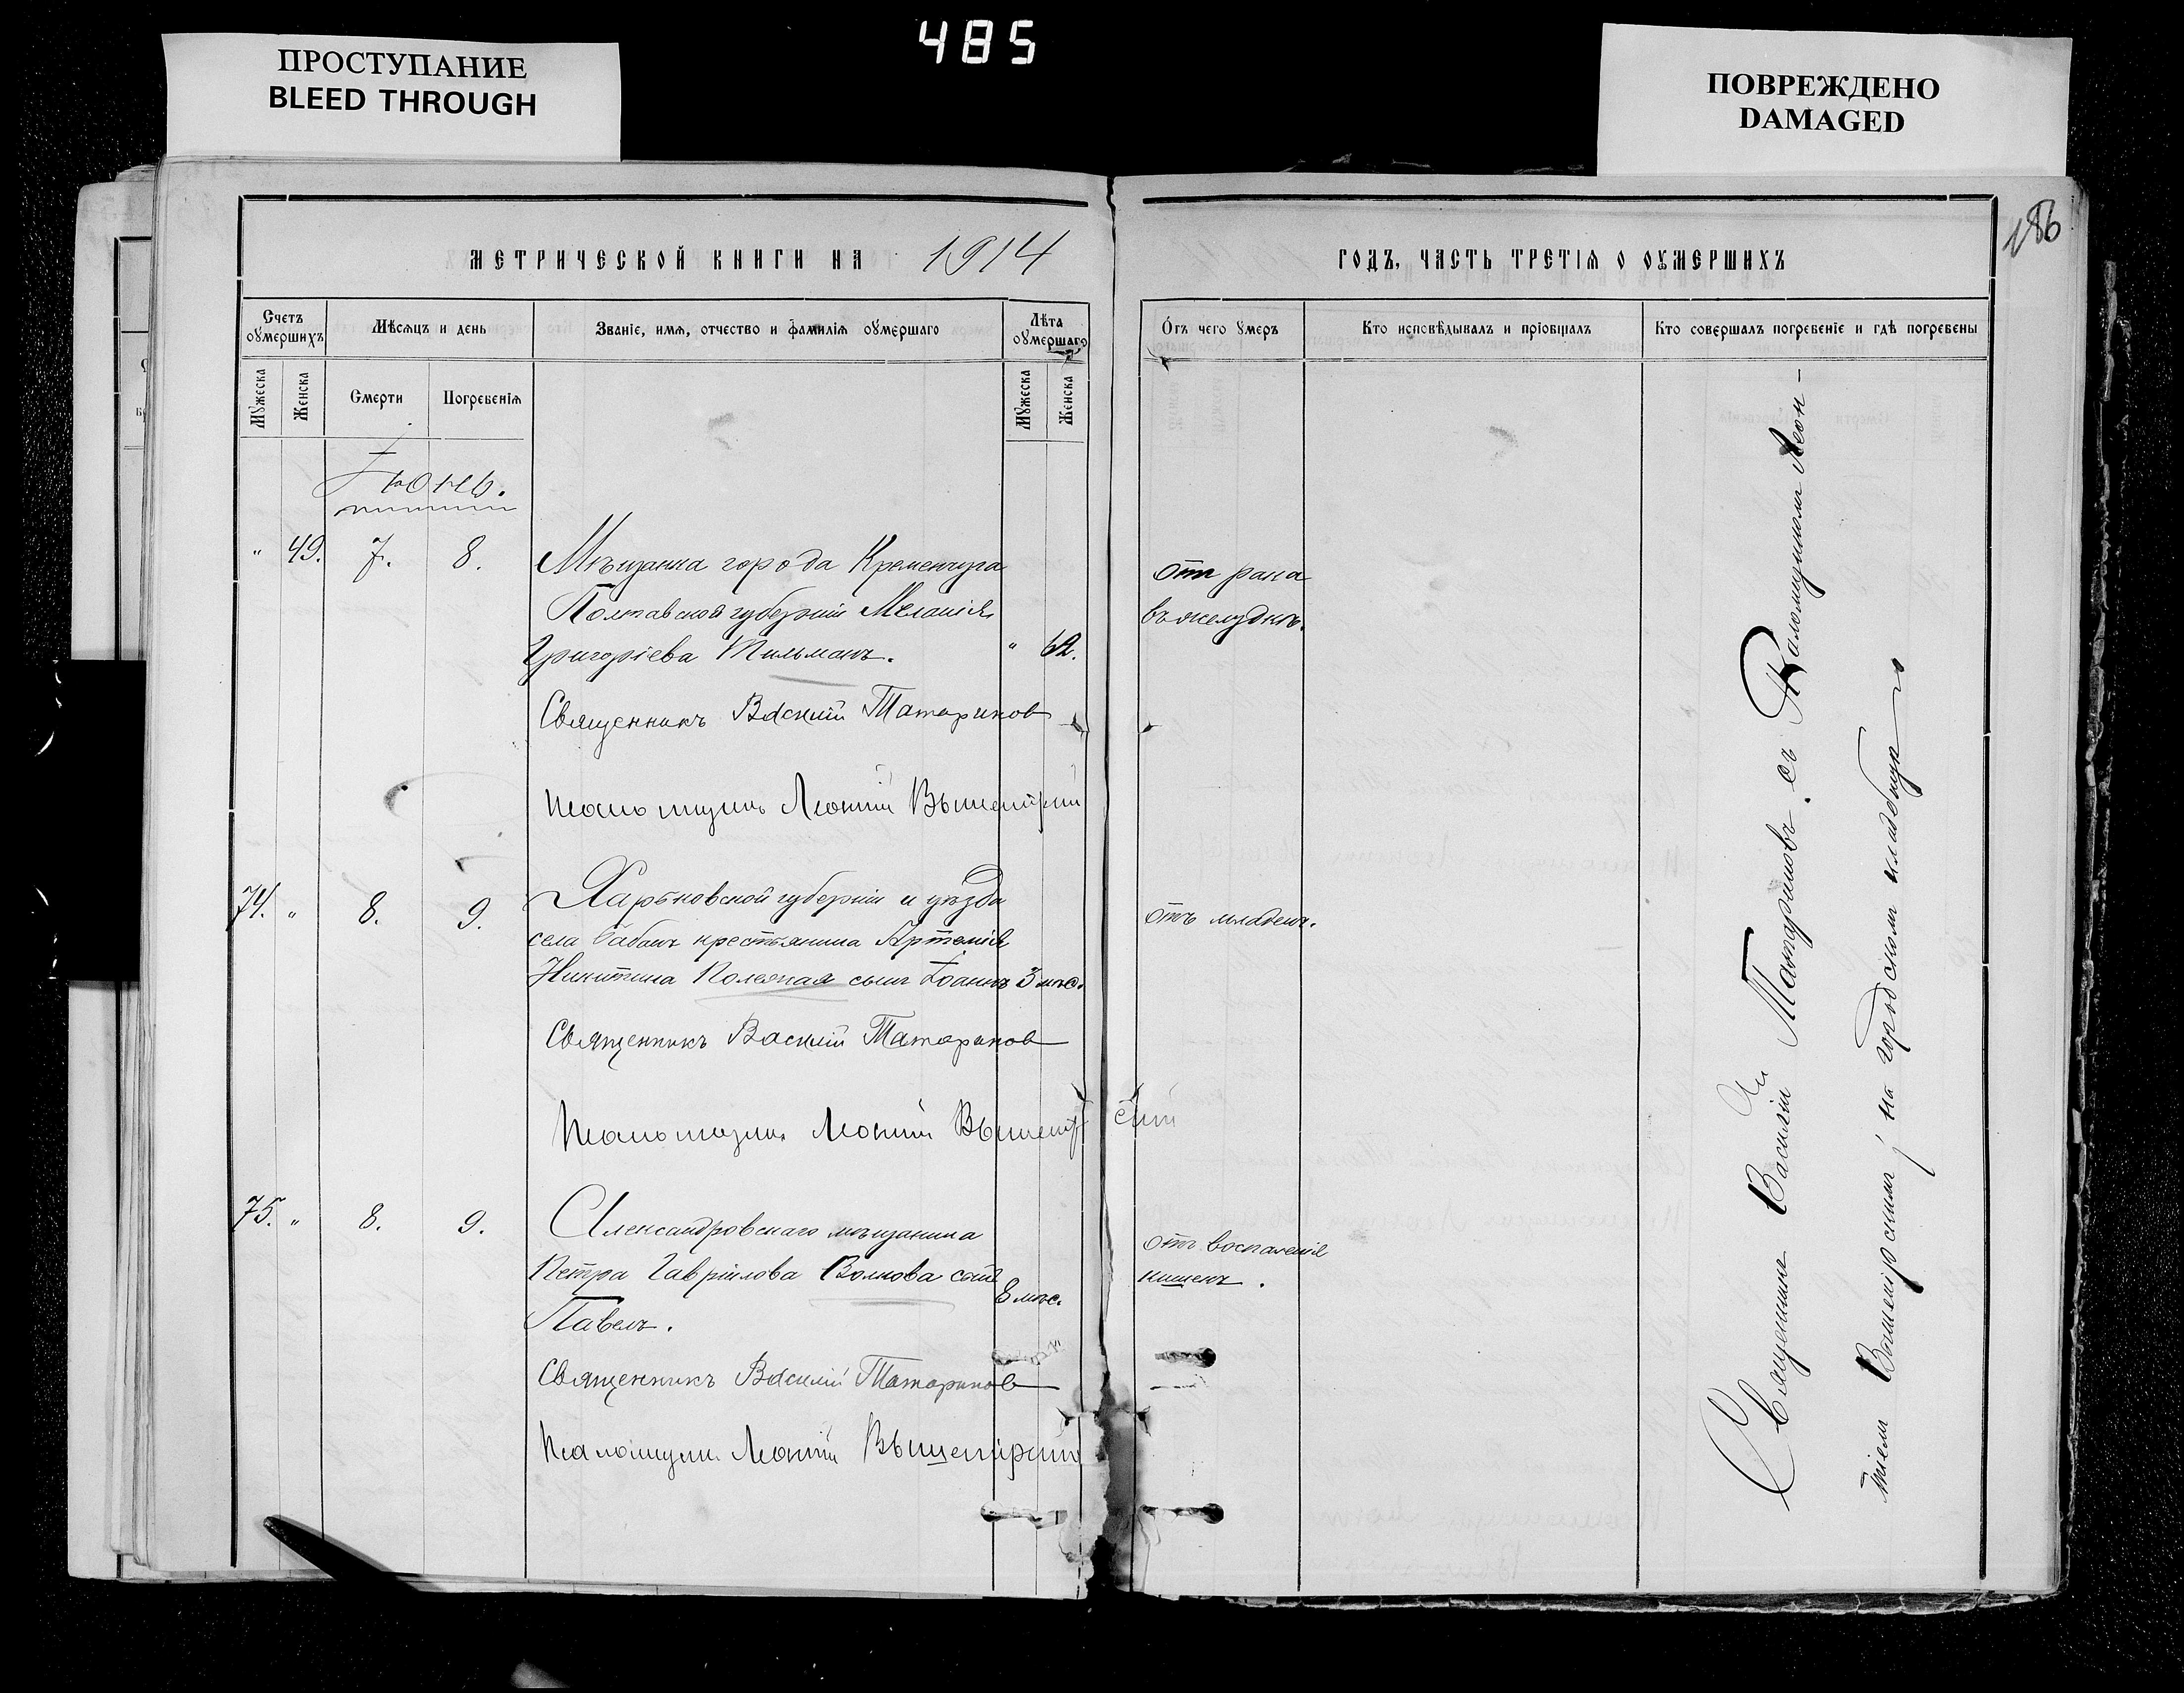 485
ПРОСТУПАНИЕ
BLEED THROUGH
ПОВРЕЖДЕНО
DAMAGED
186
МЕТРИЧЕСКОЙ КНИГИ НА 1914 ГОДЪ, ЧАСТЬ ТРЕТІЯ О ОУМЕРШИХЪ
Счетъ оумершихъ
Мѣсяцъ и день
Званіе, имя, отчество и фамилія оумершаго
Лѣта оумершаго
Отъ чего умеръ
Кто исповѣдывалъ и пріобщалъ
Кто совершалъ погребеніе и гдѣ погребены
Мужеска
Женска
Смерти
Погребенія
Мужеска
Женска
Іюнь.
" 49. 7. 8. Мѣщанка города Кременчуга отъ рака
Полтавской губерніи Меланія въ желудкѣ.
Григоріева Тильманъ. " 62.
Священникъ Василій Татаринов
Псаломщикъ Леонтій
74. " 8. 9. Харьковской губерніи и уѣзда отъ младен.
села Бабаи крестьянина Артемія
Никитина сынъ Іоаннъ 3 мѣс.
Священникъ Василій Татаринов
Псаломщикъ Леонтій
75. " 8. 9. Александровскаго мѣщанина отъ воспаленія
Петра Гавріилова Волкова сынъ кишекъ.
Павелъ. 8 мѣс.
Священникъ Василій Татаринов
Псаломщикъ Леонтій
Священникъ Василій Татариновъ съ Псаломщикомъ Леон-
тіемъ на городскомъ кладбищѣ